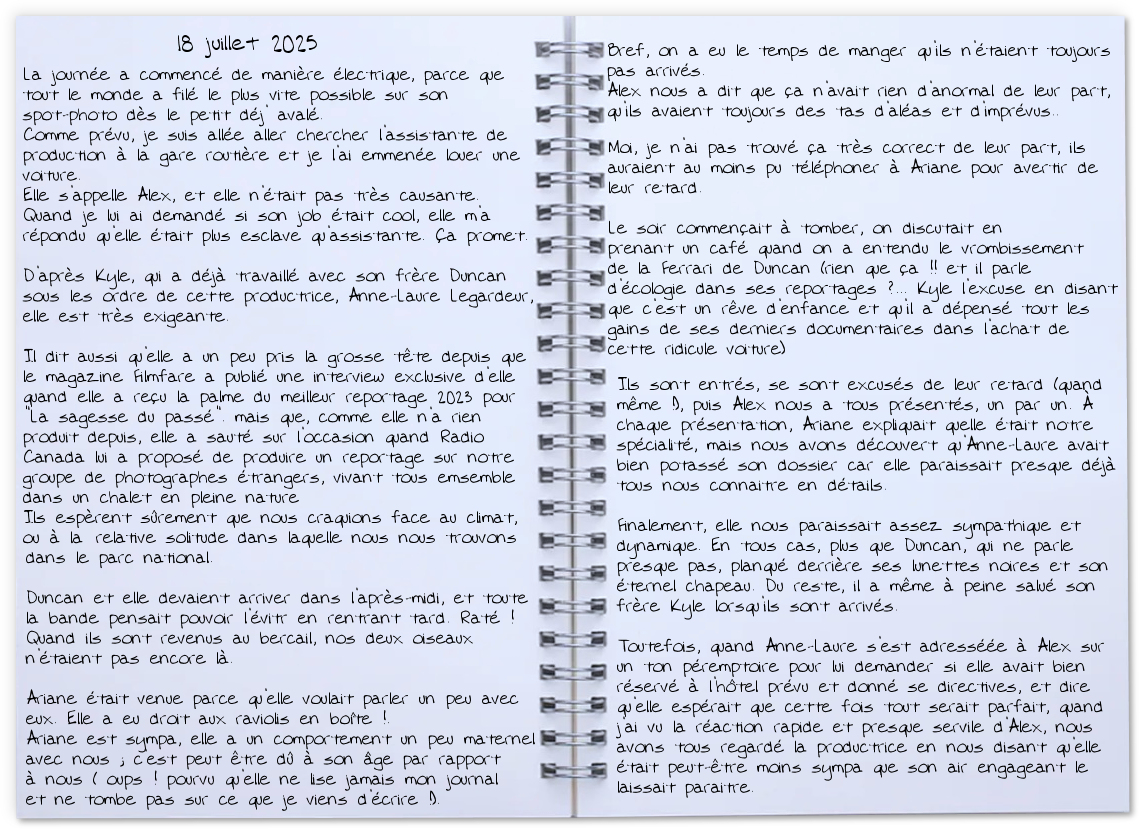 18 juillet 2025
La journée a commencé de manière électrique, parce que
tout le monde a filé le plus vite possible sur son
spot-photo dès le petit déj' avalé.
Comme prévu, je suis allée aller chercher l'assistante de
production à la gare routière et je l'ai emmenée louer une
voiture.
Elle s'appelle Alex, et elle n'était pas très causante.
Quand je lui ai demandé si son job était cool, elle m'a
répondu qu'elle était plus esclave qu'assistante. Ça promet.
D'après Kyle, qui a déjà travaillé avec son frère Duncan
sous les ordre de cette productrice, Anne-Laure Legardeur,
elle est très exigeante.
Il dit aussi qu'elle a un peu pris la grosse tête depuis que
le magazine Filmfare a publié une interview exclusive d'elle
quand elle a reçu la palme du meilleur reportage 2023 pour
"La sagesse du passé". mais que, comme elle n'a rien
produit depuis, elle a sauté sur l'occasion quand Radio
Canada lui a proposé de produire un reportage sur notre
groupe de photographes étrangers, vivant tous emsemble
dans un chalet en pleine nature
Ils espèrent sûrement que nous craquions face au climat,
ou à la relative solitude dans laquelle nous nous trouvons
dans le parc national.
Duncan et elle devaient arriver dans l'après-midi, et toute
la bande pensait pouvoir l'évitr en rentrant tard. Raté !
Quand ils sont revenus au bercail, nos deux oiseaux
n'étaient pas encore là.
Ariane était venue parce qu'elle voulait parler un peu avec
eux. Elle a eu droit aux raviolis en boîte !.
Ariane est sympa, elle a un comportement un peu maternel
avec nous ; c'est peut être dû à son âge par rapport
à nous ( oups ! pourvu qu'elle ne lise jamais mon journal
et ne tombe pas sur ce que je viens d'écrire !).
Bref, on a eu le temps de manger qu'ils n'étaient toujours
pas arrivés.
Alex nous a dit que ça n'avait rien d'anormal de leur part,
qu'ils avaient toujours des tas d'aléas et d'imprévus..
Moi, je n'ai pas trouvé ça très correct de leur part, ils
auraient au moins pu téléphoner à Ariane pour avertir de
leur retard.
Le soir commençait à tomber, on discutait en
prenant un café quand on a entendu le vrombissement
de la Ferrari de Duncan (rien que ça !! et il parle
d'écologie dans ses reportages ?... Kyle l'excuse en disant
que c'est un rêve d'enfance et qu'il a dépensé tout les
gains de ses derniers documentaires dans l'achat de
cette ridicule voiture)
Ils sont entrés, se sont excusés de leur retard (quand
même !), puis Alex nous a tous présentés, un par un. À
chaque présentation, Ariane expliquait quelle était notre
spécialité, mais nous avons découvert qu'Anne-Laure avait
bien potassé son dossier car elle paraissait presque déjà
tous nous connaitre en détails.
Finalement, elle nous paraissait assez sympathique et
dynamique. En tous cas, plus que Duncan, qui ne parle
presque pas, planqué derrière ses lunettes noires et son
éternel chapeau. Du reste, il a même à peine salué son
frère Kyle lorsqu'ils sont arrivés.
Toutefois, quand Anne-Laure s'est adressééé à Alex sur
un ton péremptoire pour lui demander si elle avait bien
réservé à l'hôtel prévu et donné se directives, et dire
qu'elle espérait que cette fois tout serait parfait, quand
j'ai vu la réaction rapide et presque servile d'Alex, nous
avons tous regardé la productrice en nous disant qu'elle
était peut-être moins sympa que son air engageant le
laissait paraitre.